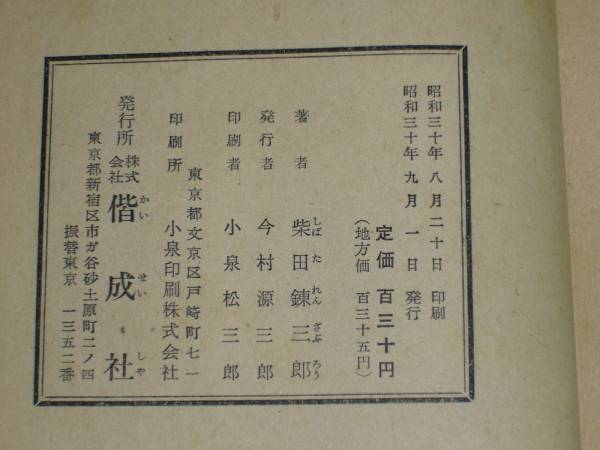 昭和三十年八月二十日 印刷
昭和三十年九月一日 発行
定価 百三十円
(地方価 百三十五円)
著者 柴田錬三郎
しば た れん ざぶ ろう
発行者 今村源三郎
印刷者 小泉松三郎
東京都文京区戸崎町七一
印刷所 小泉印刷株式会社
発行所 株式会社 偕成社
かい せい しや
東京都新宿区市ガ谷砂土原町二ノ四
振替東京 一三五二番